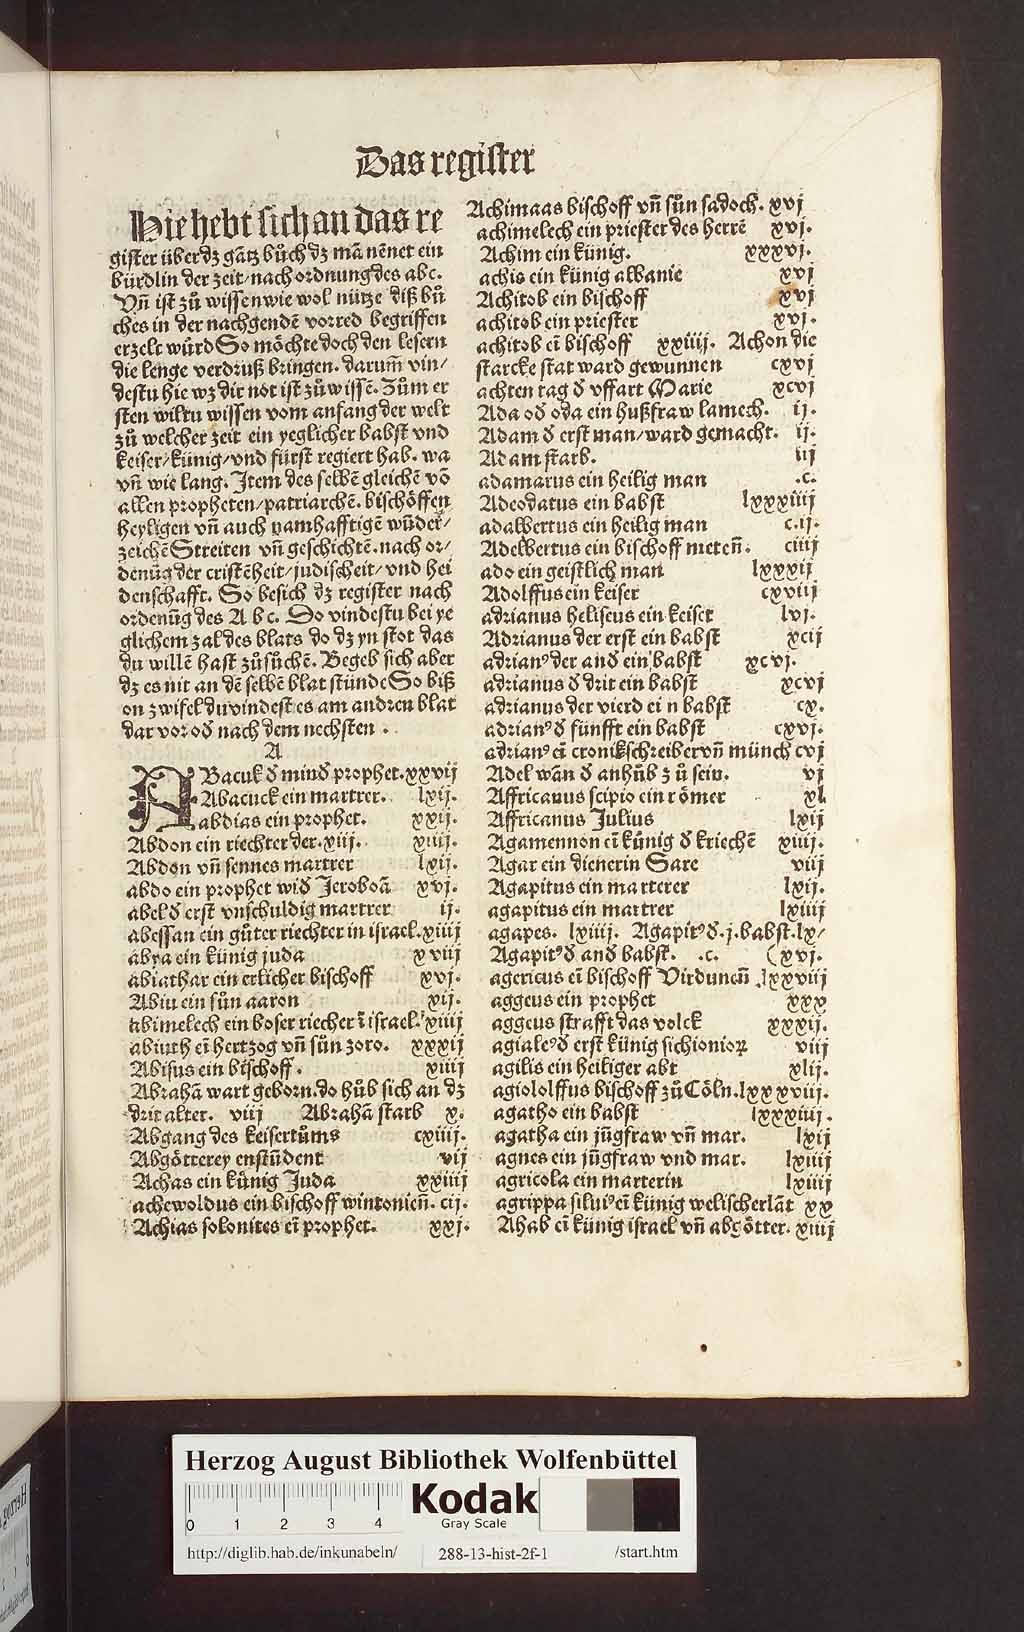 Das register
Hie hebt sich an das re
gister über dz gātz bůch dz mā nēnet ein
bürdlin der zeit/ nach ordnung des abc.
Vn̄ ist zů wissen wie wol nütze diß bů
ches in der nachgendē vorred begriffen
erzelt würd So möchte doch den lesern
die lenge verdruß bringen. darum̄ vin/
destu hie wz dir not ist zů wissē. Zům er
sten wiltu wissen vom anfang der welt
zů welcher zeit ein yeglicher babst vnd
keiser/künig/vnd fürst regiert hab. wa
vn̄ wie lang. Item des selbē gleichē vō
allen propheten/patriarchē. bischöffen
heyligen vn̄ auch namhafftigē wūder/
zeichē Streiten vn̄ geschichtē. nach or/
denūg der cristēheit/judischeit/vnd hei
denschafft. So besich dz register nach
ordenūg des A b c. So vindestu bei ye
glichem zal des blats do dz yn stot das
du willē hast zů sůchē. Begeb sich aber
dz es nit an dē selbē blat stünde So biß
on zwifel du vindest es am andren blat
dar vor oď nach dem nechsten.
A
ABacuk ď minď prophet. xxvij
Abacuck ein martrer. lxij.
abdias ein prophet. xxij.
Abdon ein riechter der. xiij. xiiij.
Abdon vn̄ sennes martrer lxij.
abdo ein prophet wiď Jeroboā xvj.
abel ď erst vnschuldig martrer ij.
abessan ein gůter riechter in israel. xiiij
abra ein künig juda xviij
abiathar ein erlicher bischoff xvj.
Abiu ein sůn aaron xij.
abimelech ein boser riecher ī israel. xiiij
abiuth eī hertzog vn̄ sůn zoro. xxxij
Abisus ein bischoff. xiiij
Abrahā wart geborn. do hůb sich an dz
drit alter. viij Abrahā starb x.
Abgang des keisertůms cxiiij.
Abgötterey enstůndent vij
Achas ein künig Juda xxiiij
achewoldus ein bischoff wintonien̄. cij.
Achias solonites eī prophet. xxj.
Achimaas bischoff vn̄ sůn sadoch. xvj
achimelech ein priester des herrē xvj.
Achim ein künig. xxxvj.
achis ein künig albanie xvj
Achitob ein bischoff xvj
achitob ein priester xvj.
achitob eī bischoff xxiiij. Achon die
starcke stat ward gewunnen cxvj
achten tag ď vffart Marie xcvj
Ada oď oda ein hußfraw lamech. ij.
Adam ď erst man/ward gemacht. ij.
Adam starb. iij
adamarus ein heilig man .c.
Adeodatus ein babst lxxxiiij
adalbertus ein heilig man c.ij.
Adelbertus ein bischoff meten̄. ciiij
ado ein geistlich man lxxxij
Adolffus ein keiser cxviij
adrianus heliseus ein keiser lvj.
Adrianus der erst ein babst xcij
adrianꝰ der anď ein babst xcvj.
adrianus ď drit ein babst xcvj
adrianus der vierd ein babst cx.
adrianꝰ ď fünfft ein babst cxvj.
adrianꝰ eī cronikschreiber vn̄ münch cvj
Adel wān ď anhůb zů sein. vj
Affricanus scipio ein römer xl
Affricanus Julius lxij
Agamennon eī künig ď kriechē xiiij.
Agar ein dienerin Sare viij
Agapitus ein marterer lxij.
agapitus ein martrer lxiiij
agapes. lxiiij. Agapitꝰ ď .j. babst. lx/
Agapitꝰ ď anď babst. .c. (xvj.
agericus eī bischoff Virdunen̄ .lxxviij
aggeus ein prophet xxx
aggeus strafft das volck xxxij.
agialeꝰ ď erst künig sichionioꝝ viij
agilis ein heiliger abt xlij.
agiololffus bischoff zů Cöln. lxxxviij.
agatho ein babst lxxxiiij.
agatha ein jūgfraw vn̄ mar. lxij
agnes ein jūgfraw vnd mar. lxiiij
agricola ein marterin lxiiij
agrippa siluiꝰ eī künig welischerlāt xx
Ahab eī künig israel vn̄ abgötter. xiiij
Herzog August Bibliothek Wolfenbüttel
0 1 2 3 4
Kodak
Gray Scale
http://diglib.hab.de/inkunabeln/ 288-13-hist-2f-1 /start.htm